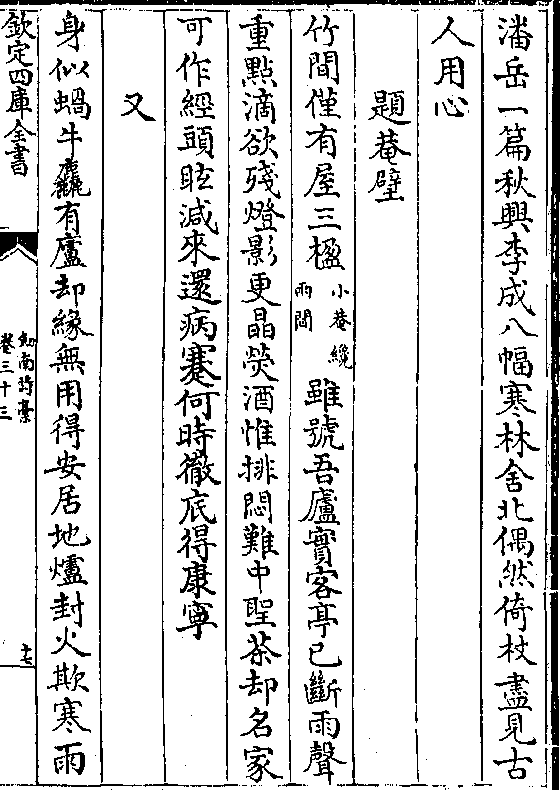 潘岳一篇秋興李成八幅寒林舍北偶然倚杖盡見古
人用心
題菴壁
竹間僅有屋三楹小菴纔兩間雖號吾廬實客亭已斷雨聲
重點滴欲殘燈影更晶熒酒惟排悶難中聖茶却名家
可作經頭眩減來還病蹇何時徹底得康寧
又
身似蝸牛麤有廬却緣無用得安居地爐封火欺寒雨
欽定四庫全書
劍南詩藁
卷三十三
十七